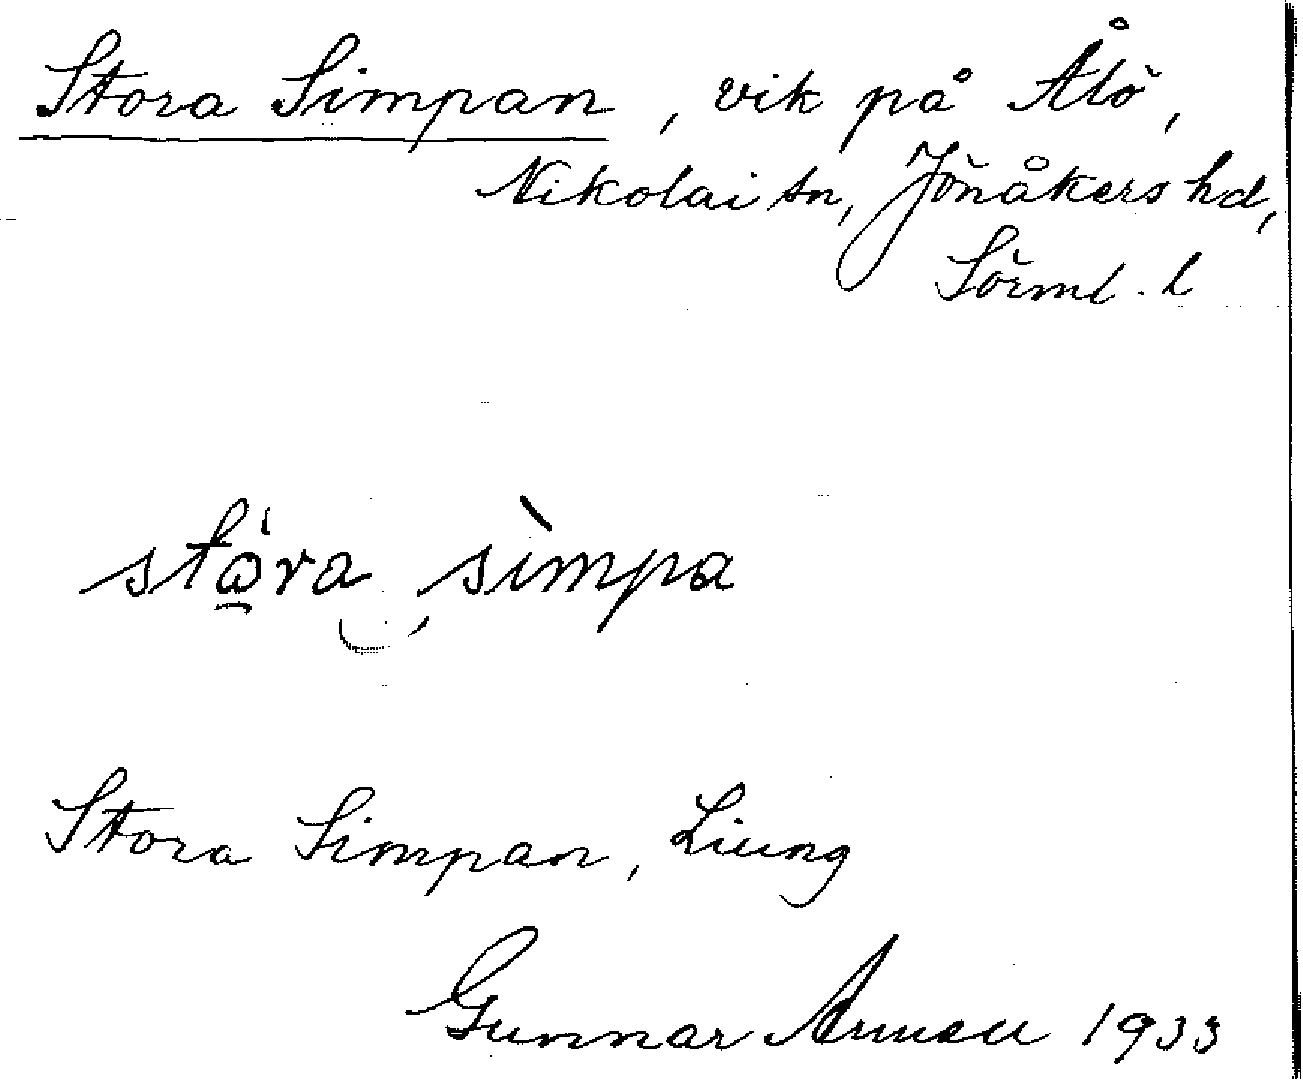 Stora Simpan, vik på Ålö,
Nikolai sn, Jönåkers hd,
Sörml. l
stọ̀ra sìmpa
Stora Simpan, Liung
Gunnar 1933